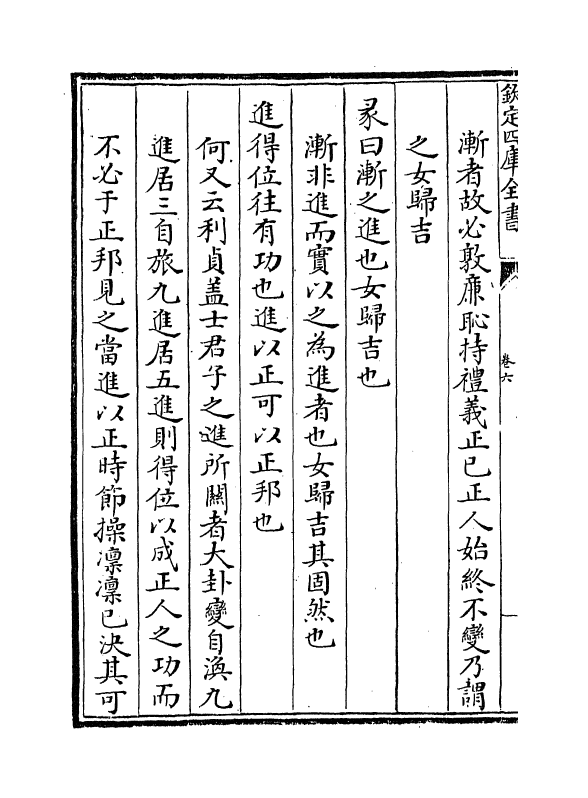 欽定四庫全書
卷六
漸者故必敦廉恥持禮義正已正人始終不變乃謂
之女歸吉
彖曰漸之進也女歸吉也
漸非進而實以之為進者也女歸吉其固然也
進得位往有功也進以正可以正邦也
何又云利貞蓋士君子之進所關者大卦變自渙九
進居三自旅九進居五進則得位以成正人之功而
不必于正邦見之當進以正時節操凛凛已決其可